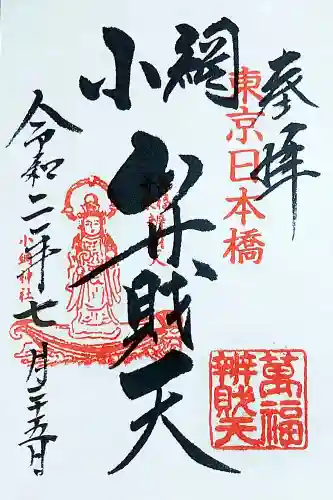 奉拝
東京日本橋
小網
弁財天
令和二年七月二十五日
小網神社
萬福
辨財天